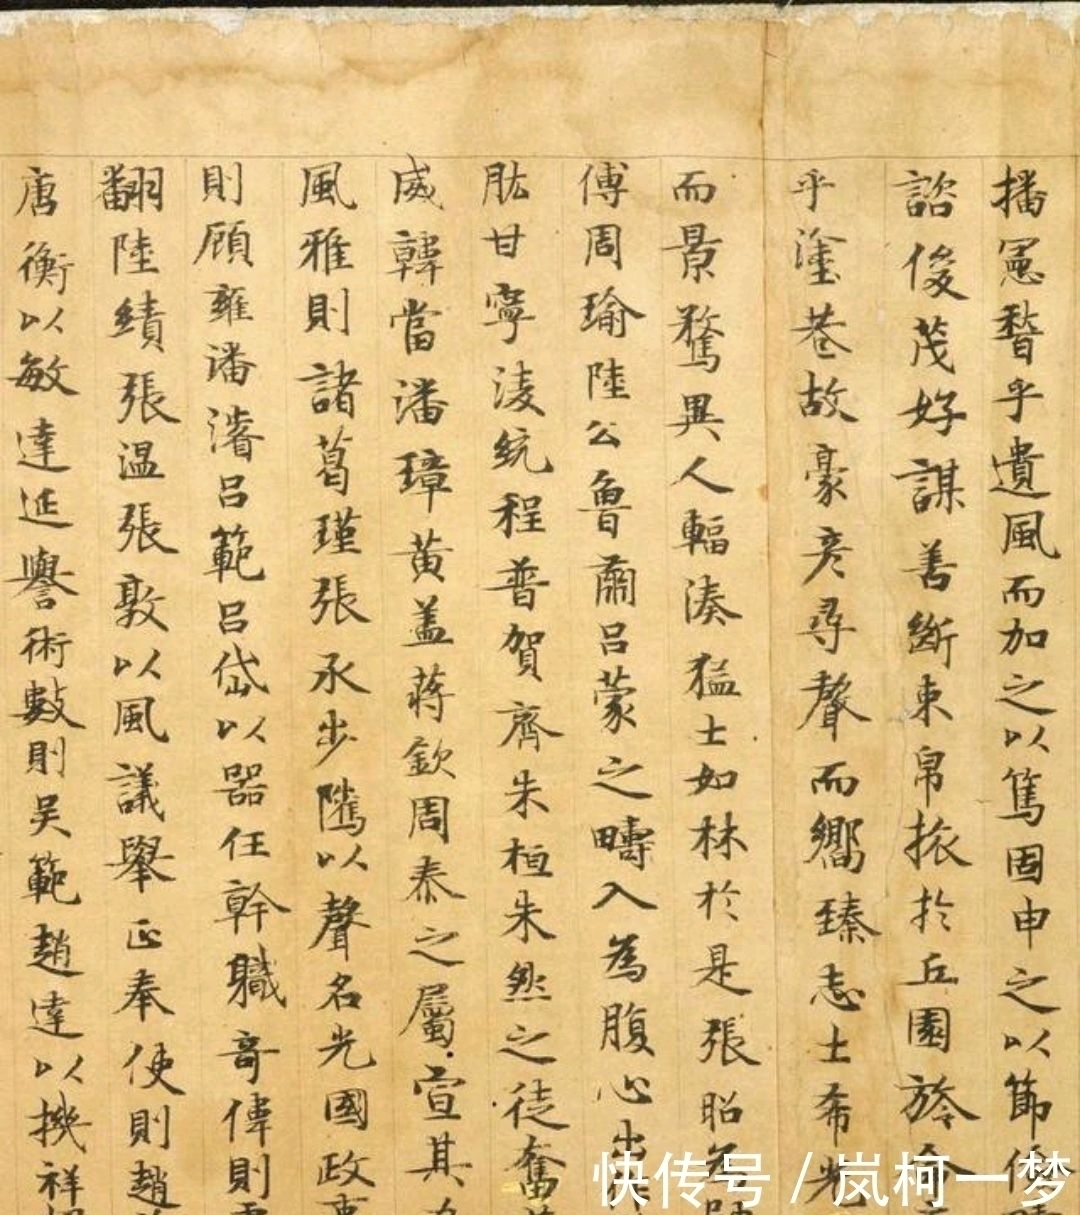 播憲稽乎遺風而加之以篤固申之以節
諮俊茂好謀善斷束帛振於丘園旌命
乎塗巷故豪彦尋聲而嚮臻志士希光
而景騖異人輻湊猛士如林於是張昭為師
傅周瑜陸公魯肅呂蒙之疇入為腹心出
肱甘寧淩統程普賀齊朱桓朱然之徒奮
威韓當潘璋黃盖蒋欽周泰之屬宣其
風雅則諸葛瑾張承步騭以聲名光國政
則顧雍潘濬呂範呂岱以器任幹職奇偉則
翻陸績張温張敦以風議舉正奉使則趙
唐衡以敏達延譽術數則吳範趙達以機祥
快传号/岚柯一梦